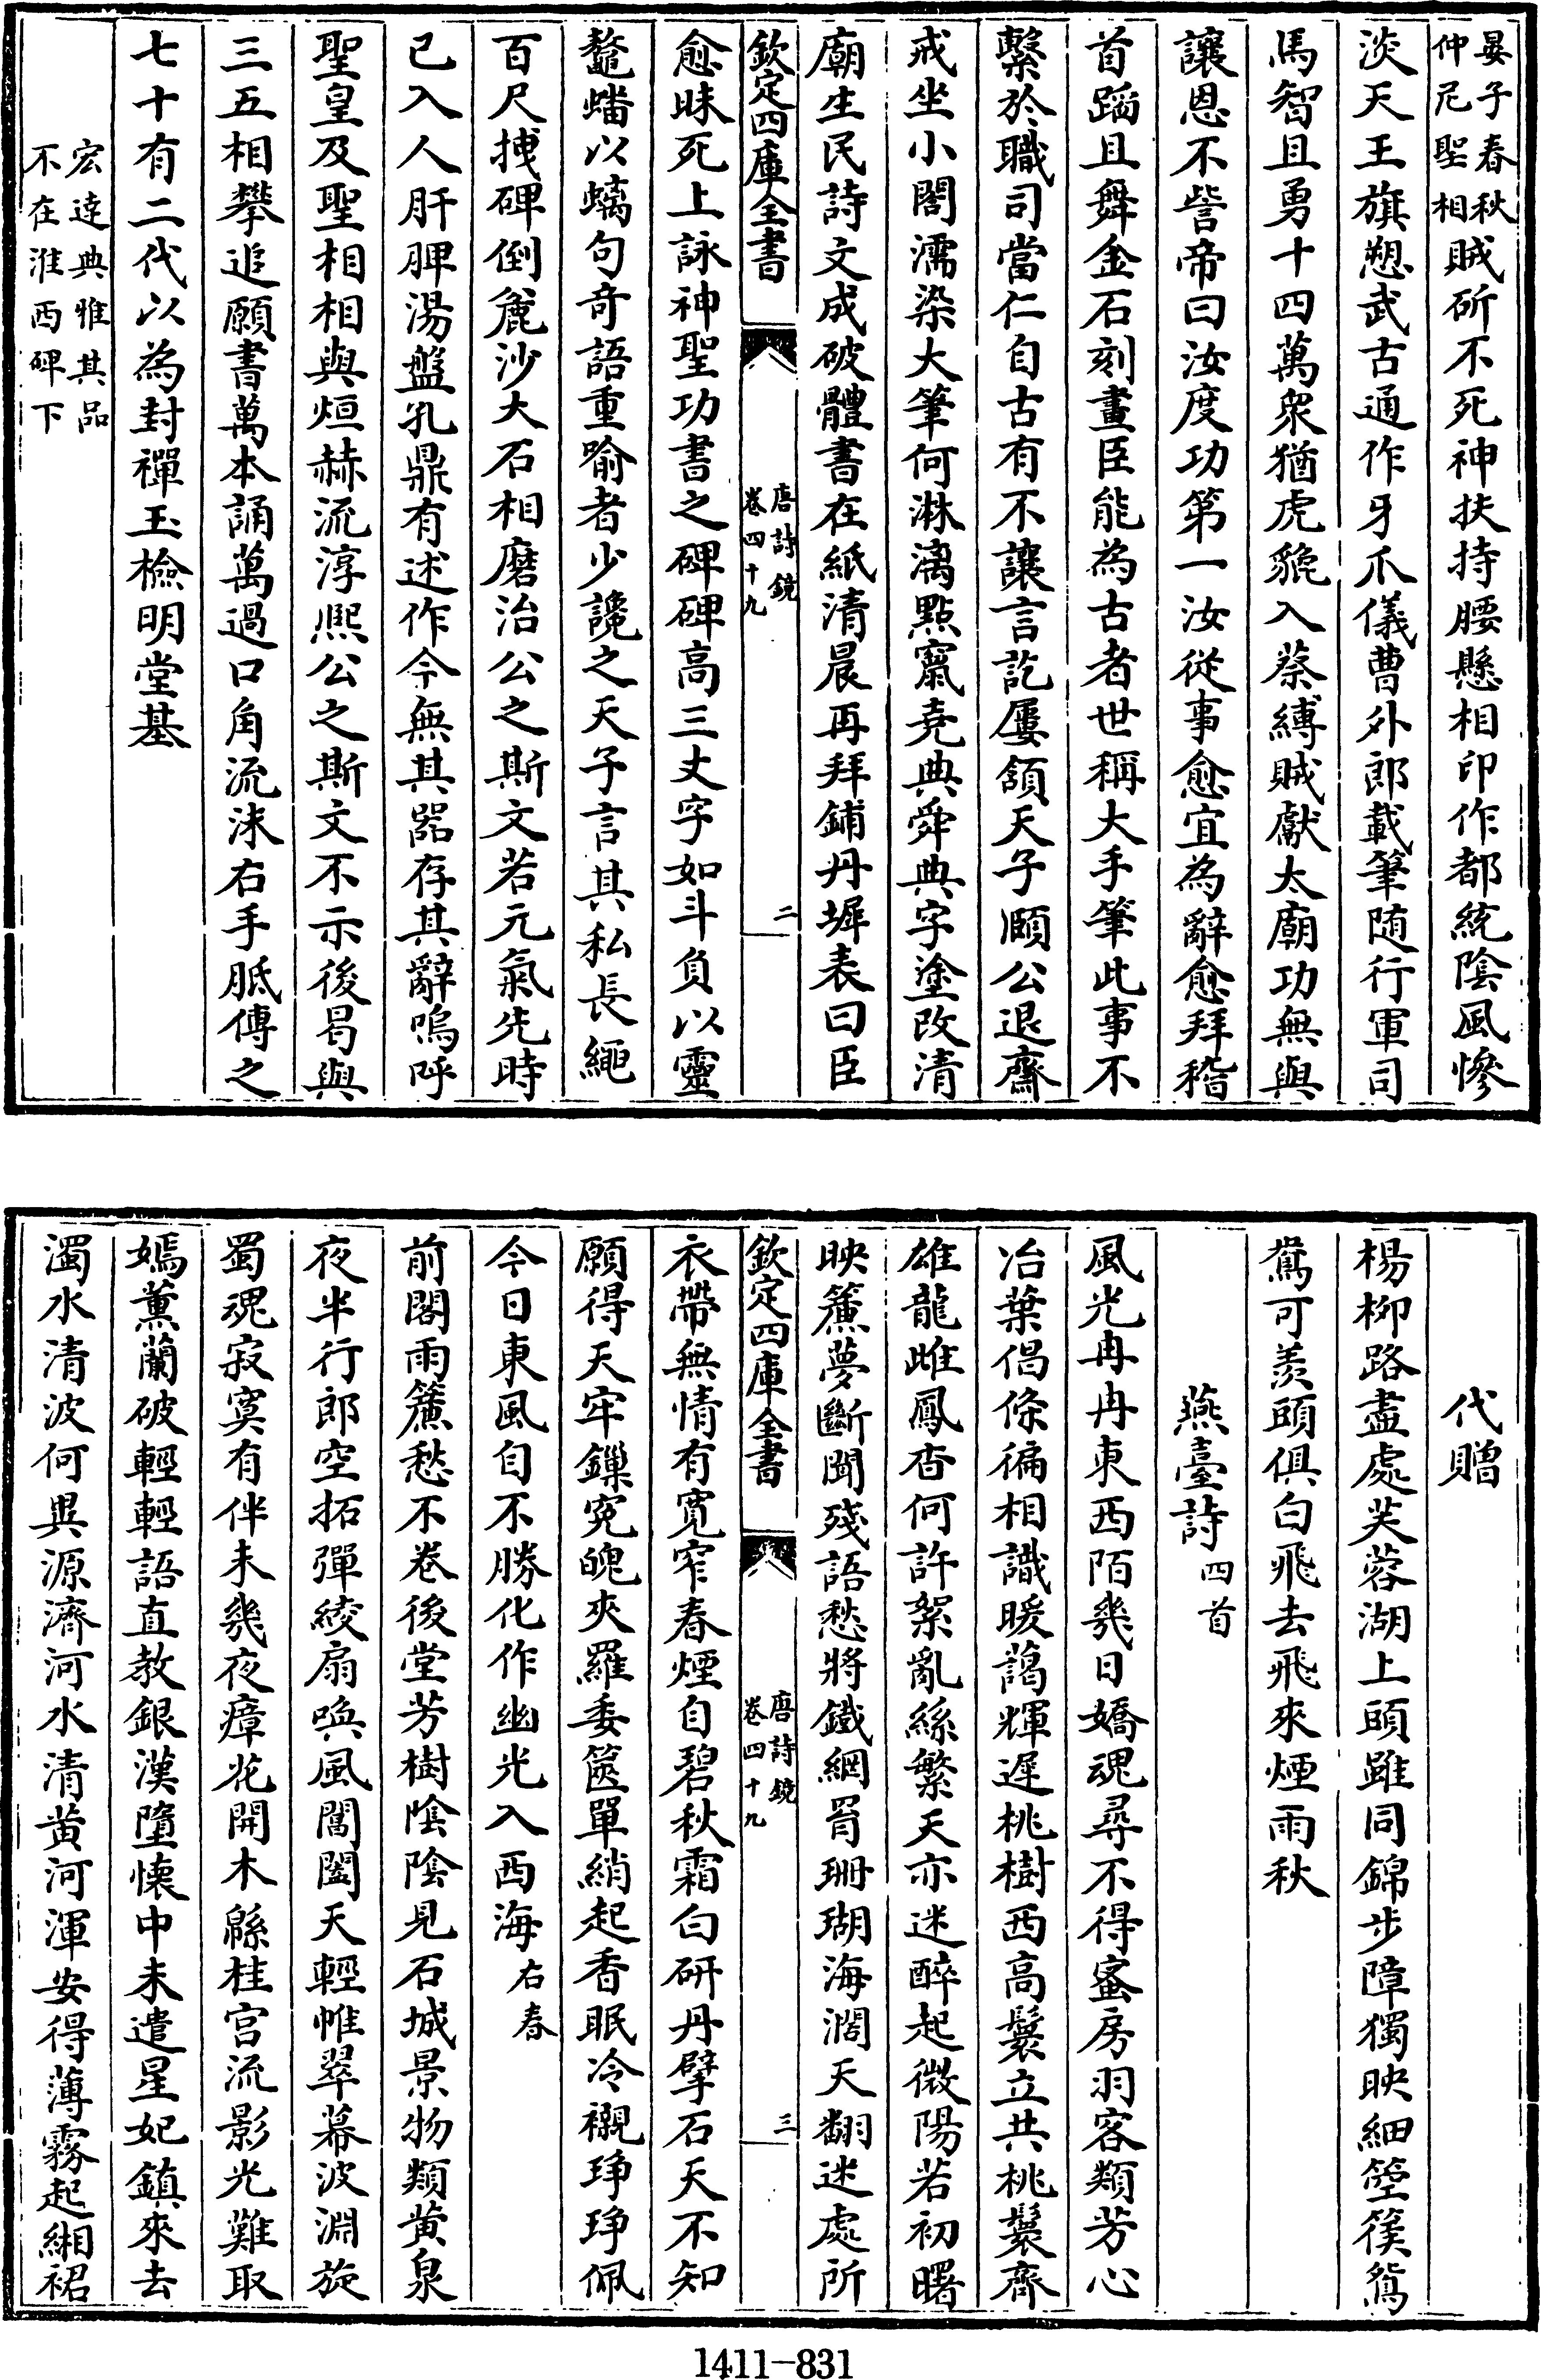 晏子春秋
仲尼聖相賊斫不死神扶持腰懸相印作都統陰風慘
淡天王旗愬武古通作牙爪儀曹外郎載筆随行軍司
馬智且勇十四萬衆猶虎貔入蔡縛賊獻太廟功無與
讓恩不訾帝曰汝度功第一汝從事愈宜為辭愈拜稽
首蹈且舞金石刻畫臣能為古者世稱大手筆此事不
繫於職司當仁自古有不讓言訖屢頷天子頤公退齋
戒坐小閣濡染大筆何淋漓點竄堯典舜典字塗改清
廟生民詩文成破體書在紙清晨再拜鋪丹墀表曰臣
欽定四庫全書
唐詩鏡
卷四十九
二
愈昧死上詠神聖功書之碑碑高三丈字如斗負以靈
鼇蟠以螭句奇語重喻者少讒之天子言其私長繩
百尺拽碑倒麄沙大石相磨治公之斯文若元氣先時
已入人肝脾湯盤孔鼎有述作今無其器存其辭嗚呼
聖皇及聖相相與烜赫流淳熙公之斯文不示後曷與
三五相攀追願書萬本誦萬過口角流沫右手胝傳之
七十有二代以為封禪玉檢明堂基
宏逹典雅其品
不在淮西碑下
代贈
楊柳路盡處芙蓉湖上頭雖同錦步障獨映細箜篌鴛
鴦可羨頭俱白飛去飛來煙雨秋
燕臺詩四首
風光冉冉東西陌幾日嬌魂尋不得蜜房羽客類芳心
冶葉倡條徧相識暖藹輝遲桃樹西高鬟立共桃鬟齊
雄龍雌鳳杳何許絮亂絲繁天亦迷醉起微陽若初曙
映簾夢斷聞殘語愁將鐵網罥珊瑚海濶天翻迷處所
欽定四庫全書
唐詩鏡
卷四十九
三
衣帶無情有寛窄春煙自碧秋霜白研丹擘石天不知
願得天牢鏁寃魄夾羅委篋單綃起香眠冷襯琤琤佩
今日東風自不勝化作幽光入西海右春
前閣雨簾愁不卷後堂芳樹陰陰見石城景物類黄泉
夜半行郎空拓彈綾扇喚風閶闔天輕帷翠幕波淵旋
蜀魂寂寞有伴未幾夜瘴花開木緜桂宫流影光難取
嫣薰蘭破輕輕語直教銀漢墮懐中未遣星妃鎮來去
濁水清波何異源濟河水清黄河渾安得薄霧起緗裙
1411-831